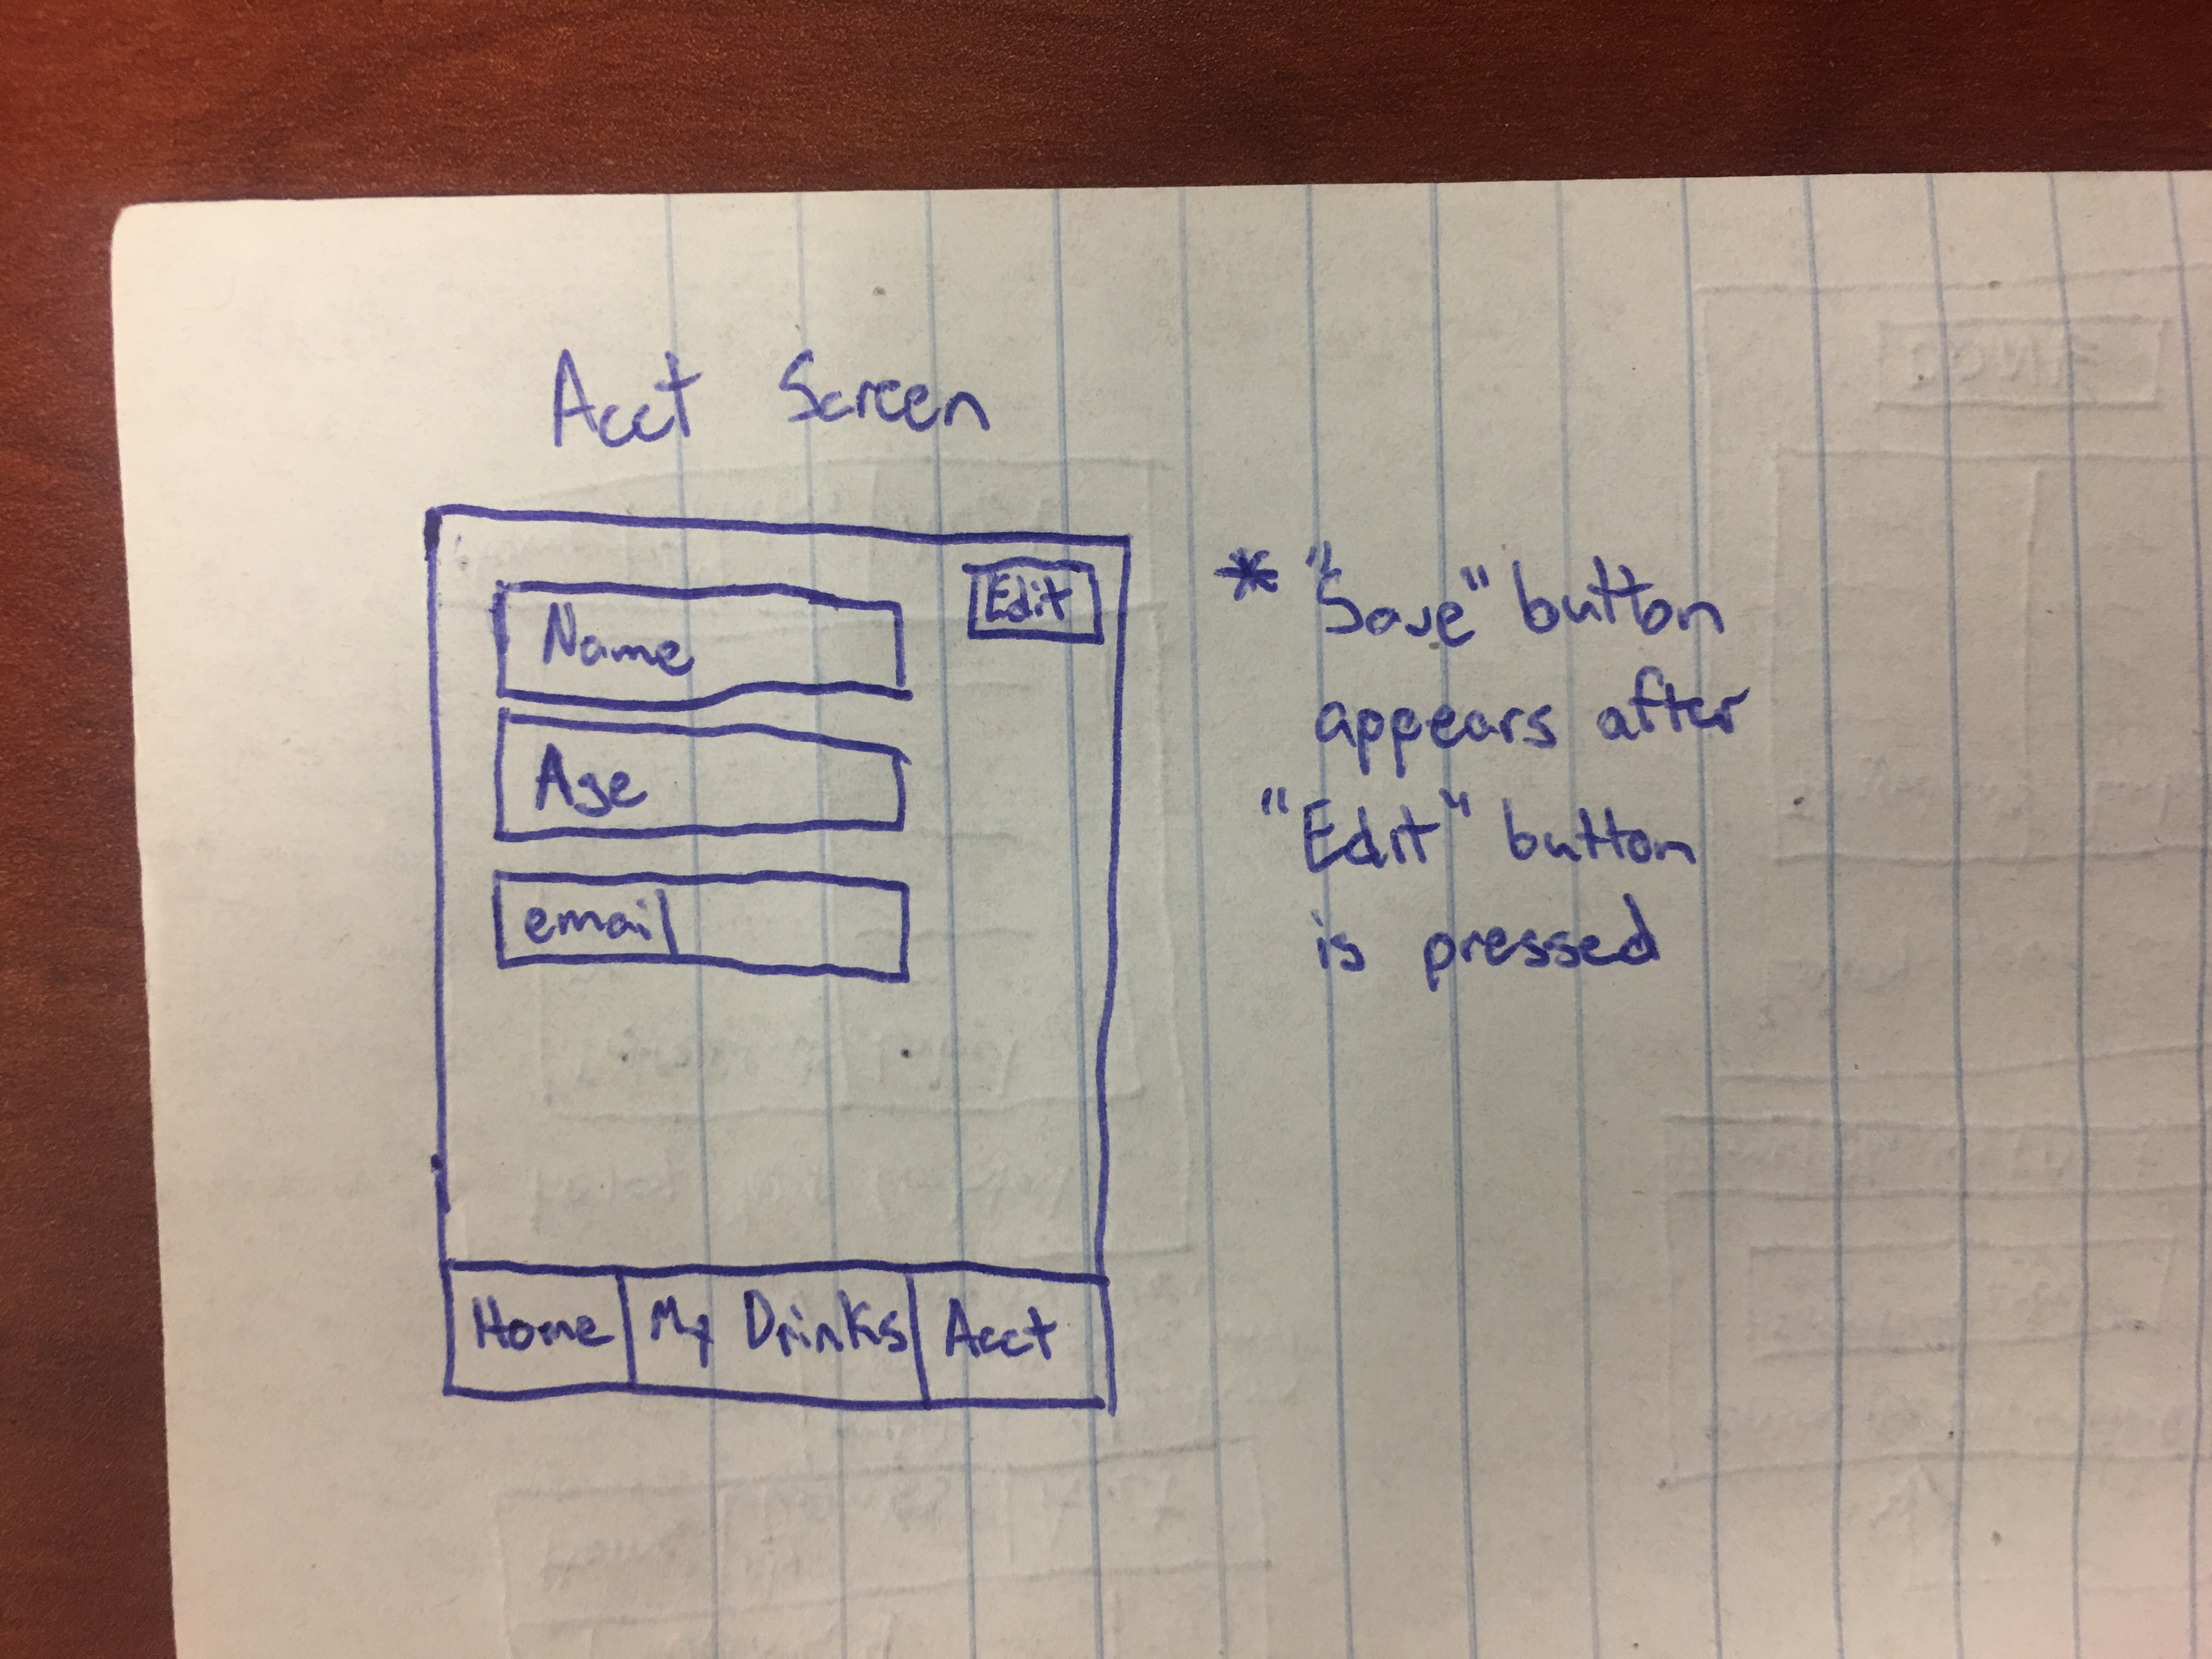 Acct Screen
Edit
Name
Age
email
Home My Drinks Acct
* "Save" button
appears after
"Edit" button
is pressed